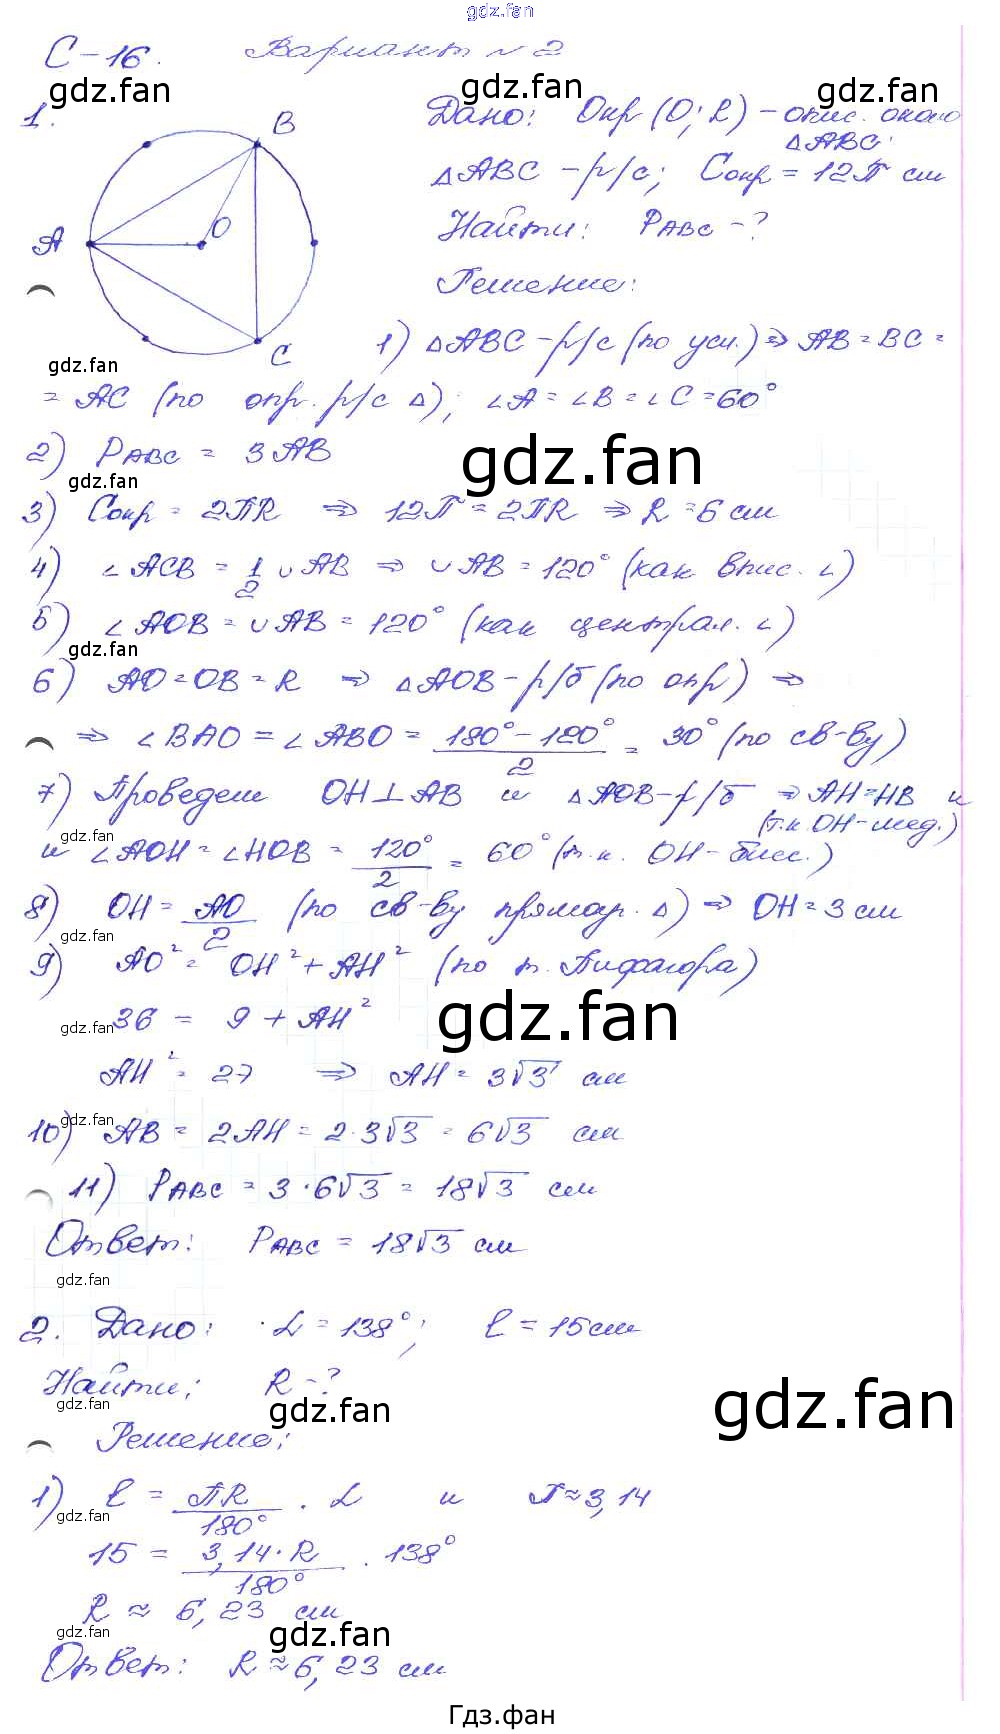 gdz.fan
С-16. Вариант №2
gdz.fan gdz.fan gdz.fan
1. Дано: Окр(O; R) – опис. около
△ABC.
B
△ABC – р/с; Cокр = 12π см
A O Найти: PABC – ?
Решение:
C
1) △ABC – р/с (по усл.) ⇒ AB = BC =
gdz.fan
= AC (по опр. р/с △); ∠A = ∠B = ∠C = 60°
2) PABC = 3AB
gdz.fan
gdz.fan
3) Cокр = 2πR ⇒ 12π = 2πR ⇒ R = 6 см
4) ∠ACB = 1/2 ∪AB ⇒ ∪AB = 120° (как впис. ∠)
5) ∠AOB = ∪AB = 120° (как централ. ∠)
gdz.fan
6) AO = OB = R ⇒ △AOB – р/б (по опр) ⇒
⇒ ∠BAO = ∠ABO = (180° – 120°)/2 = 30° (по св-ву)
7) Проведем OH ⊥ AB и △AOB – р/б ⇒ AH = HB и
(т.к. OH – мед.)
gdz.fan
и ∠AOH = ∠HOB = 120°/2 = 60° (т.к. OH – бисс.)
8) OH = AO/2 (по св-ву прямоуг. △) ⇒ OH = 3 см
gdz.fan
9) AO² = OH² + AH² (по т. Пифагора)
36 = 9 + AH²
gdz.fan gdz.fan
AH² = 27 ⇒ AH = 3√3 см
gdz.fan
10) AB = 2AH = 2·3√3 = 6√3 см
11) PABC = 3·6√3 = 18√3 см
Ответ: PABC = 18√3 см
gdz.fan
2. Дано: α = 138°; ℓ = 15 см
Найти: R – ?
gdz.fan gdz.fan gdz.fan
Решение:
1) ℓ = πR/180° · α и π ≈ 3,14
gdz.fan
15 = 3,14·R/180° · 138°
R ≈ 6,23 см
gdz.fan gdz.fan
Ответ: R ≈ 6,23 см
Гдз.фан